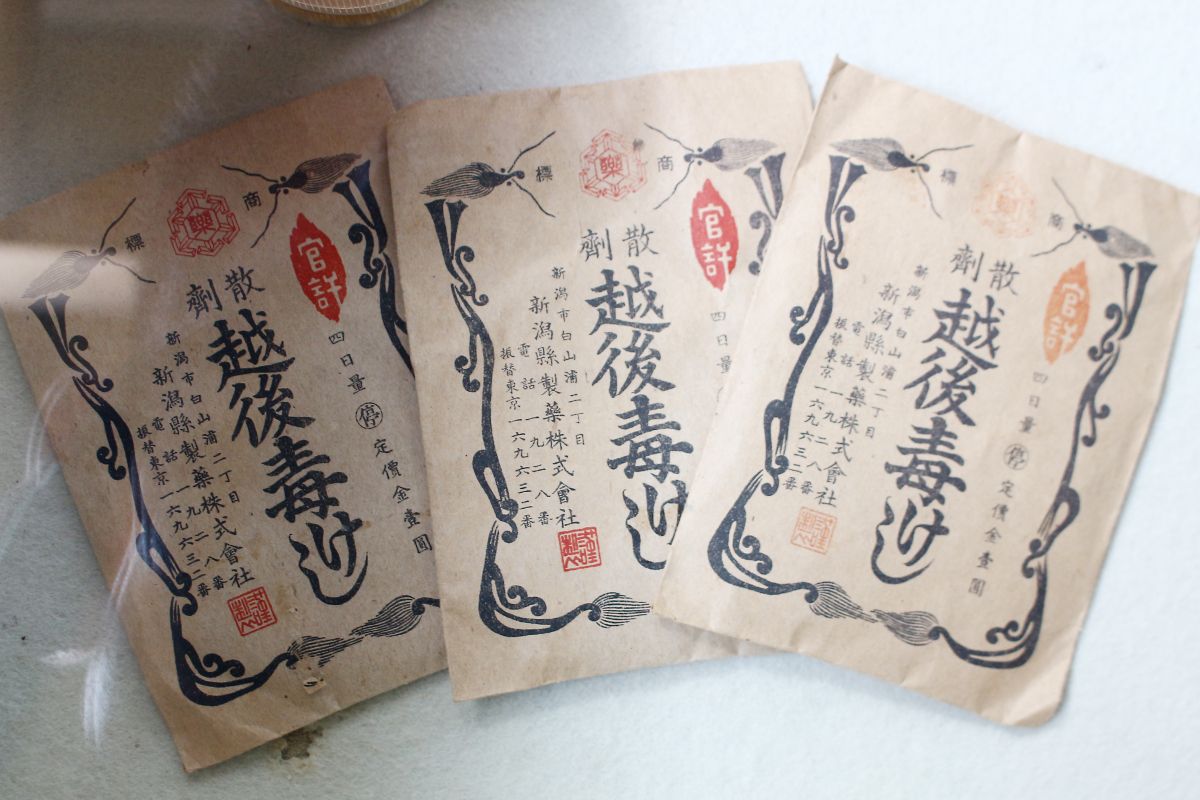 商標
藥
官許
四日量 停 定價金壹圓
散劑
越後毒けし
新潟市白山浦二丁目
新潟縣製藥株式會社
電話一九二八番
振替東京一六九六三二番
商標
藥
官許
四日量
散劑
越後毒けし
新潟市白山浦二丁目
新潟縣製藥株式會社
電話一九二八番
振替東京一六九六三二番
商標
藥
官許
四日量 停 定價金壹圓
散劑
越後毒けし
新潟市白山浦二丁目
新潟縣製藥株式會社
電話一九二八番
振替東京一六九六三二番